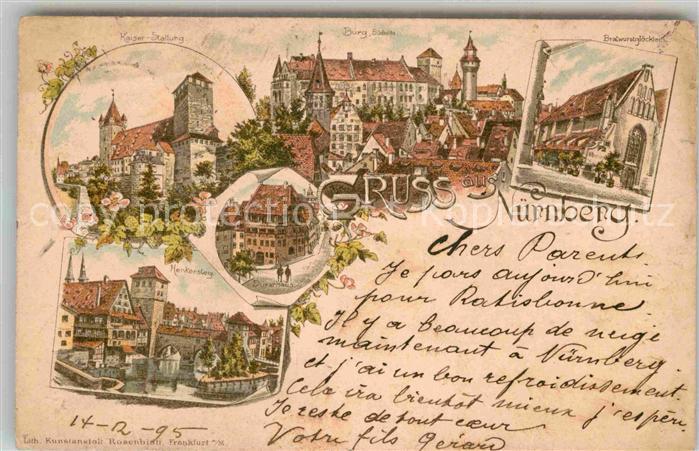 Kaiser-Stallung
Burg, Südseite
Bratwurstglöcklein
GRUSS aus
Nürnberg.
Dürerhaus
Henkersteg
Chers Parents
Je pars aujourd'hui
pour Ratisbonne.
Il y a beaucoup de neige
maintenant à Nürnberg.
et j'ai un bon refroidissement.
Cela ira bientôt mieux j'espère.
Je reste de tout cœur
Votre fils Gérard
14-12-95
Lith. Kunstanstalt Rosenblatt, Frankfurt a/M.